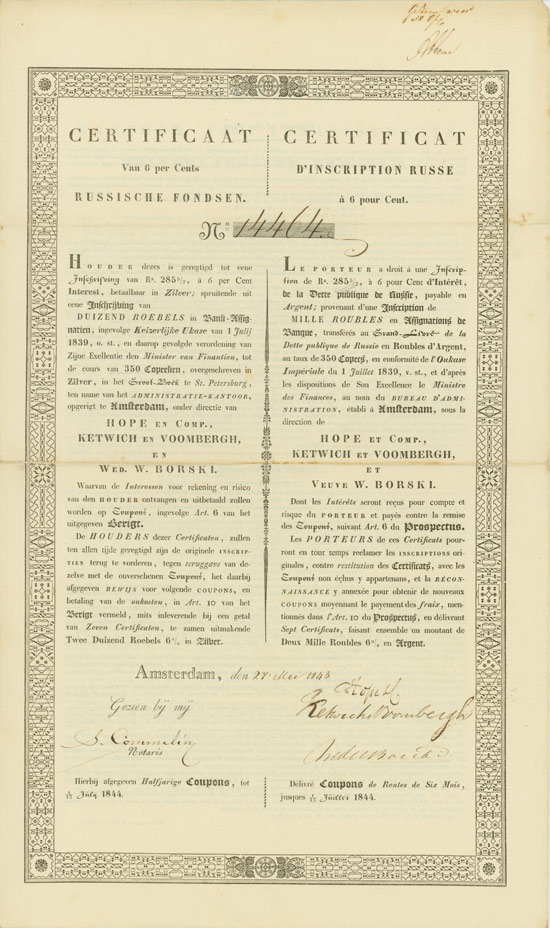 CERTIFICAAT
Van 6 per Cents
RUSSISCHE FONDSEN.
CERTIFICAT
D'INSCRIPTION RUSSE
à 6 pour Cent.
No. 14464.
HOUDER dezes is geregtigd tot eene
Inschrijving van Rs. 285 5/7, à 6 per Cent
Interest, betaalbaar in Zilver; spruitende uit
eene Inschrijving van
DUIZEND ROEBELS in Bank-Assig-
natien, ingevolge Keizerlijke Ukase van 1 Julij
1839, o. st., en daarop gevolgde verordening van
Zijne Exellentie den Minister van Finantien, tot
de cours van 350 Copecken, overgeschreven in
Zilver, in het Groot-Boek te St. Petersburg,
ten name van het ADMINISTRATIE-KANTOOR,
opgerigt te Amsterdam, onder directie van
HOPE EN COMP.,
KETWICH EN VOOMBERGH,
EN
WED. W. BORSKI.
Waarvan de Interessen voor rekening en risico
van den HOUDER ontvangen en uitbetaald zullen
worden op Coupons, ingevolge Art. 6 van het
uitgegeven Berigt.
De HOUDERS dezer Certificaten, zullen
ten allen tijde geregtigd zijn de originele INSCRIP-
TIEN terug te vorderen, tegen teruggave van de-
zelve met de onverschenen Coupons, het daarbij
afgegeven BEWIJS voor volgende COUPONS, en
betaling van de onkosten, in Art. 10 van het
Berigt vermeld, mits inleverende bij een getal
van Zeven Certificaten, te zamen uitmakende
Twee Duizend Roebels 6% in Zilver.
LE PORTEUR a droit à une Inscrip-
tion de Rs. 285 5/7, à 6 pour Cent d'Intérêt,
de la Dette publique de Russie, payable en
Argent; provenant d'une Inscription de
MILLE ROUBLES en Assignations de
Banque, transférés au Grand-Livre de la
Dette publique de Russie en Roubles d'Argent,
au taux de 350 Copecs, en conformité de l'Oukase
Impériale du 1 Juillet 1839, v. st., et d'après
les dispositions de Son Excellence le Ministre
des Finances, au nom du BUREAU D'ADMI-
NISTRATION, établi à Amsterdam, sous la
direction de
HOPE ET COMP.,
KETWICH ET VOOMBERGH,
ET
VEUVE W. BORSKI.
Dont les Intérêts seront reçus pour compte et
risque du PORTEUR et payés contre la remise
des Coupons, suivant Art. 6 du Prospectus.
Les PORTEURS de ces Certificats pour-
ront en tout temps reclamer les INSCRIPTIONS ori-
ginales, contre restitution des Certificats, avec les
Coupons non échus y appartenans, et la RÉCON-
NAISSANCE y annexée pour obtenir de nouveaux
COUPONS moyennant le payement des fraix, men-
tionnés dans l'Art. 10 du Prospectus, en délivrant
Sept Certificats, faisant ensemble un montant de
Deux Mille Roubles 6% en Argent.
Amsterdam, den 27 Mei 1843
Gezien bij mij
S. Commelin
Notaris
Ketwich & Voombergh
Hierbij afgegeven Halfjarige Coupons, tot
1/13 July 1844.
Délivré Coupons de Rentes de Six Mois,
jusques 1/13 Juillet 1844.